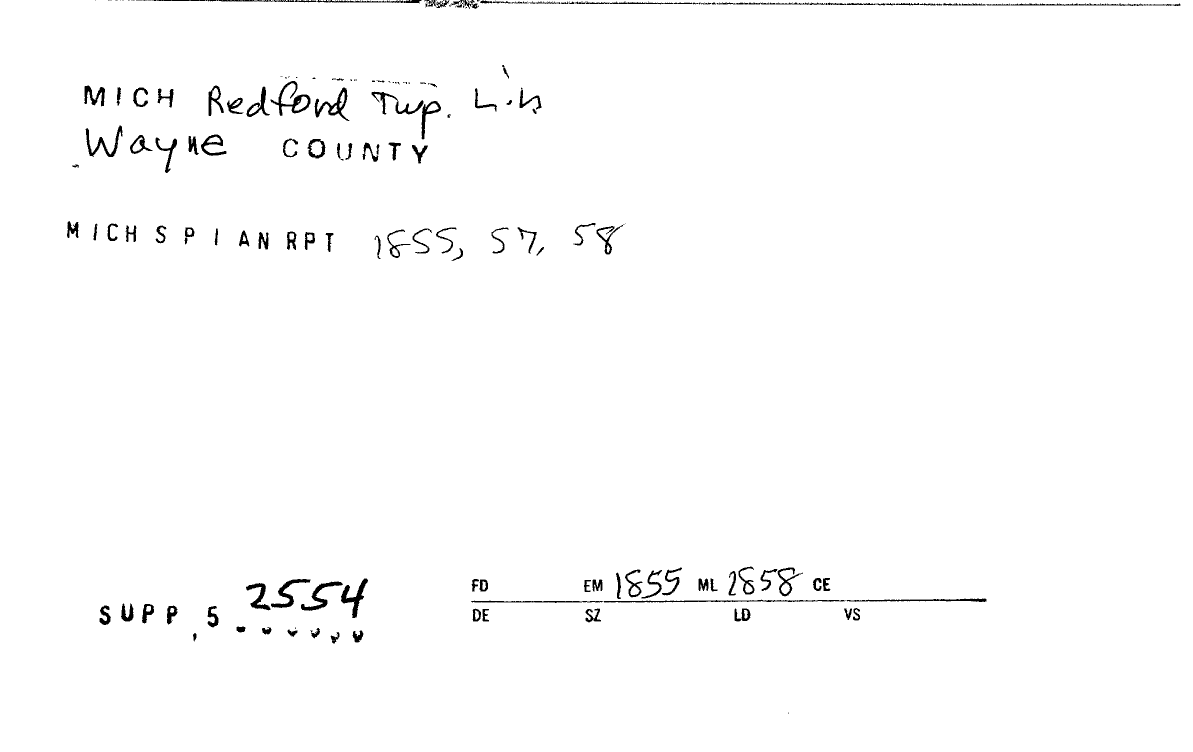 MICH Redford Twp. Lib
Wayne COUNTY
MICH S P I AN RPT 1855, 57, 58
SUPP, 5 2554
FD EM 1855 ML 1858 CE
DE SZ LD VS